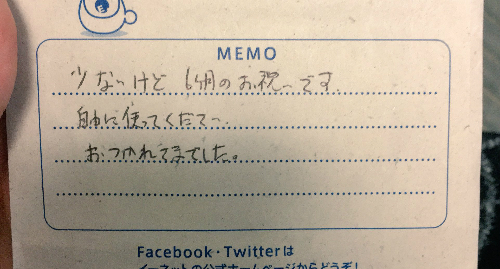 MEMO
少ないけど 6ヶ月のお祝いです
自由に使ってください。
おつかれさまでした。
Facebook・Twitterは
イーネットの公式ホームページからどうぞ!